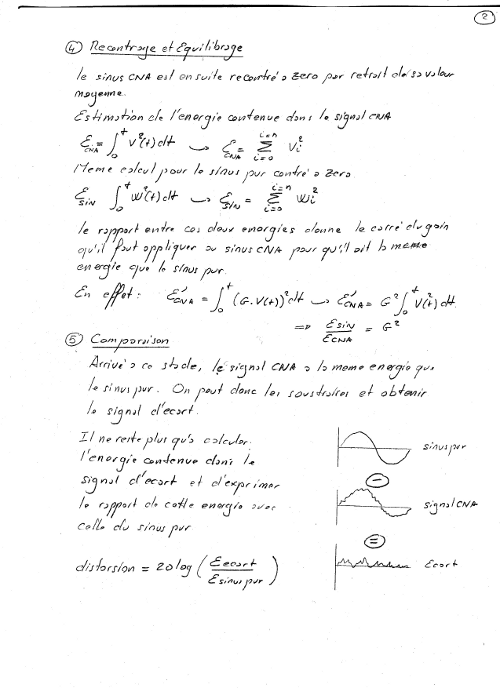 2
④ Recentrage et Equilibrage
le sinus CNA est ensuite recentré a zero par retrait de sa valeur
moyenne.
Estimation de l'energie contenue dans le signal CNA
Ɛ_CNA = ∫₀ᵗ V²(t)dt ⤳ Ɛ_CNA = Σ_{i=0}^{i=n} Vi²
Meme calcul pour le sinus pur centré a zero.
Ɛ_SIN ∫₀ᵗ W²(t)dt ⤳ Ɛ_SIN = Σ_{i=0}^{i=n} Wi²
le rapport entre ces deux energies donne le carré du gain
qu'il faut appliquer au sinus CNA pour qu'il ait la meme
energie que le sinus pur.
En effet : Ɛ'_CNA = ∫₀ᵗ (G.V(t))² dt ⤳ Ɛ'_CNA = G² ∫₀ᵗ V(t)² dt.
⇒ Ɛsin/ƐCNA = G²
⑤ Comparaison
Arrivé a ce stade, le signal CNA a la meme energie que
le sinus pur. On peut donc les soustraires et obtenir
le signal d'ecart.
Il ne reste plus qu'a calculer
l'energie contenue dans le
signal d'ecart et d'exprimer
le rapport de cette energie avec
celle du sinus pur
distorsion = 20 log (Ɛecart/Ɛsinus pur)
sinus pur
−
signal CNA
=
Ecart